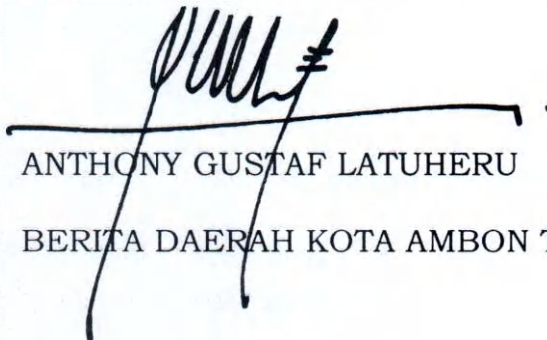 ANTHONY GUSTAF LATUHERU
BERITA DAERAH KOTA AMBON